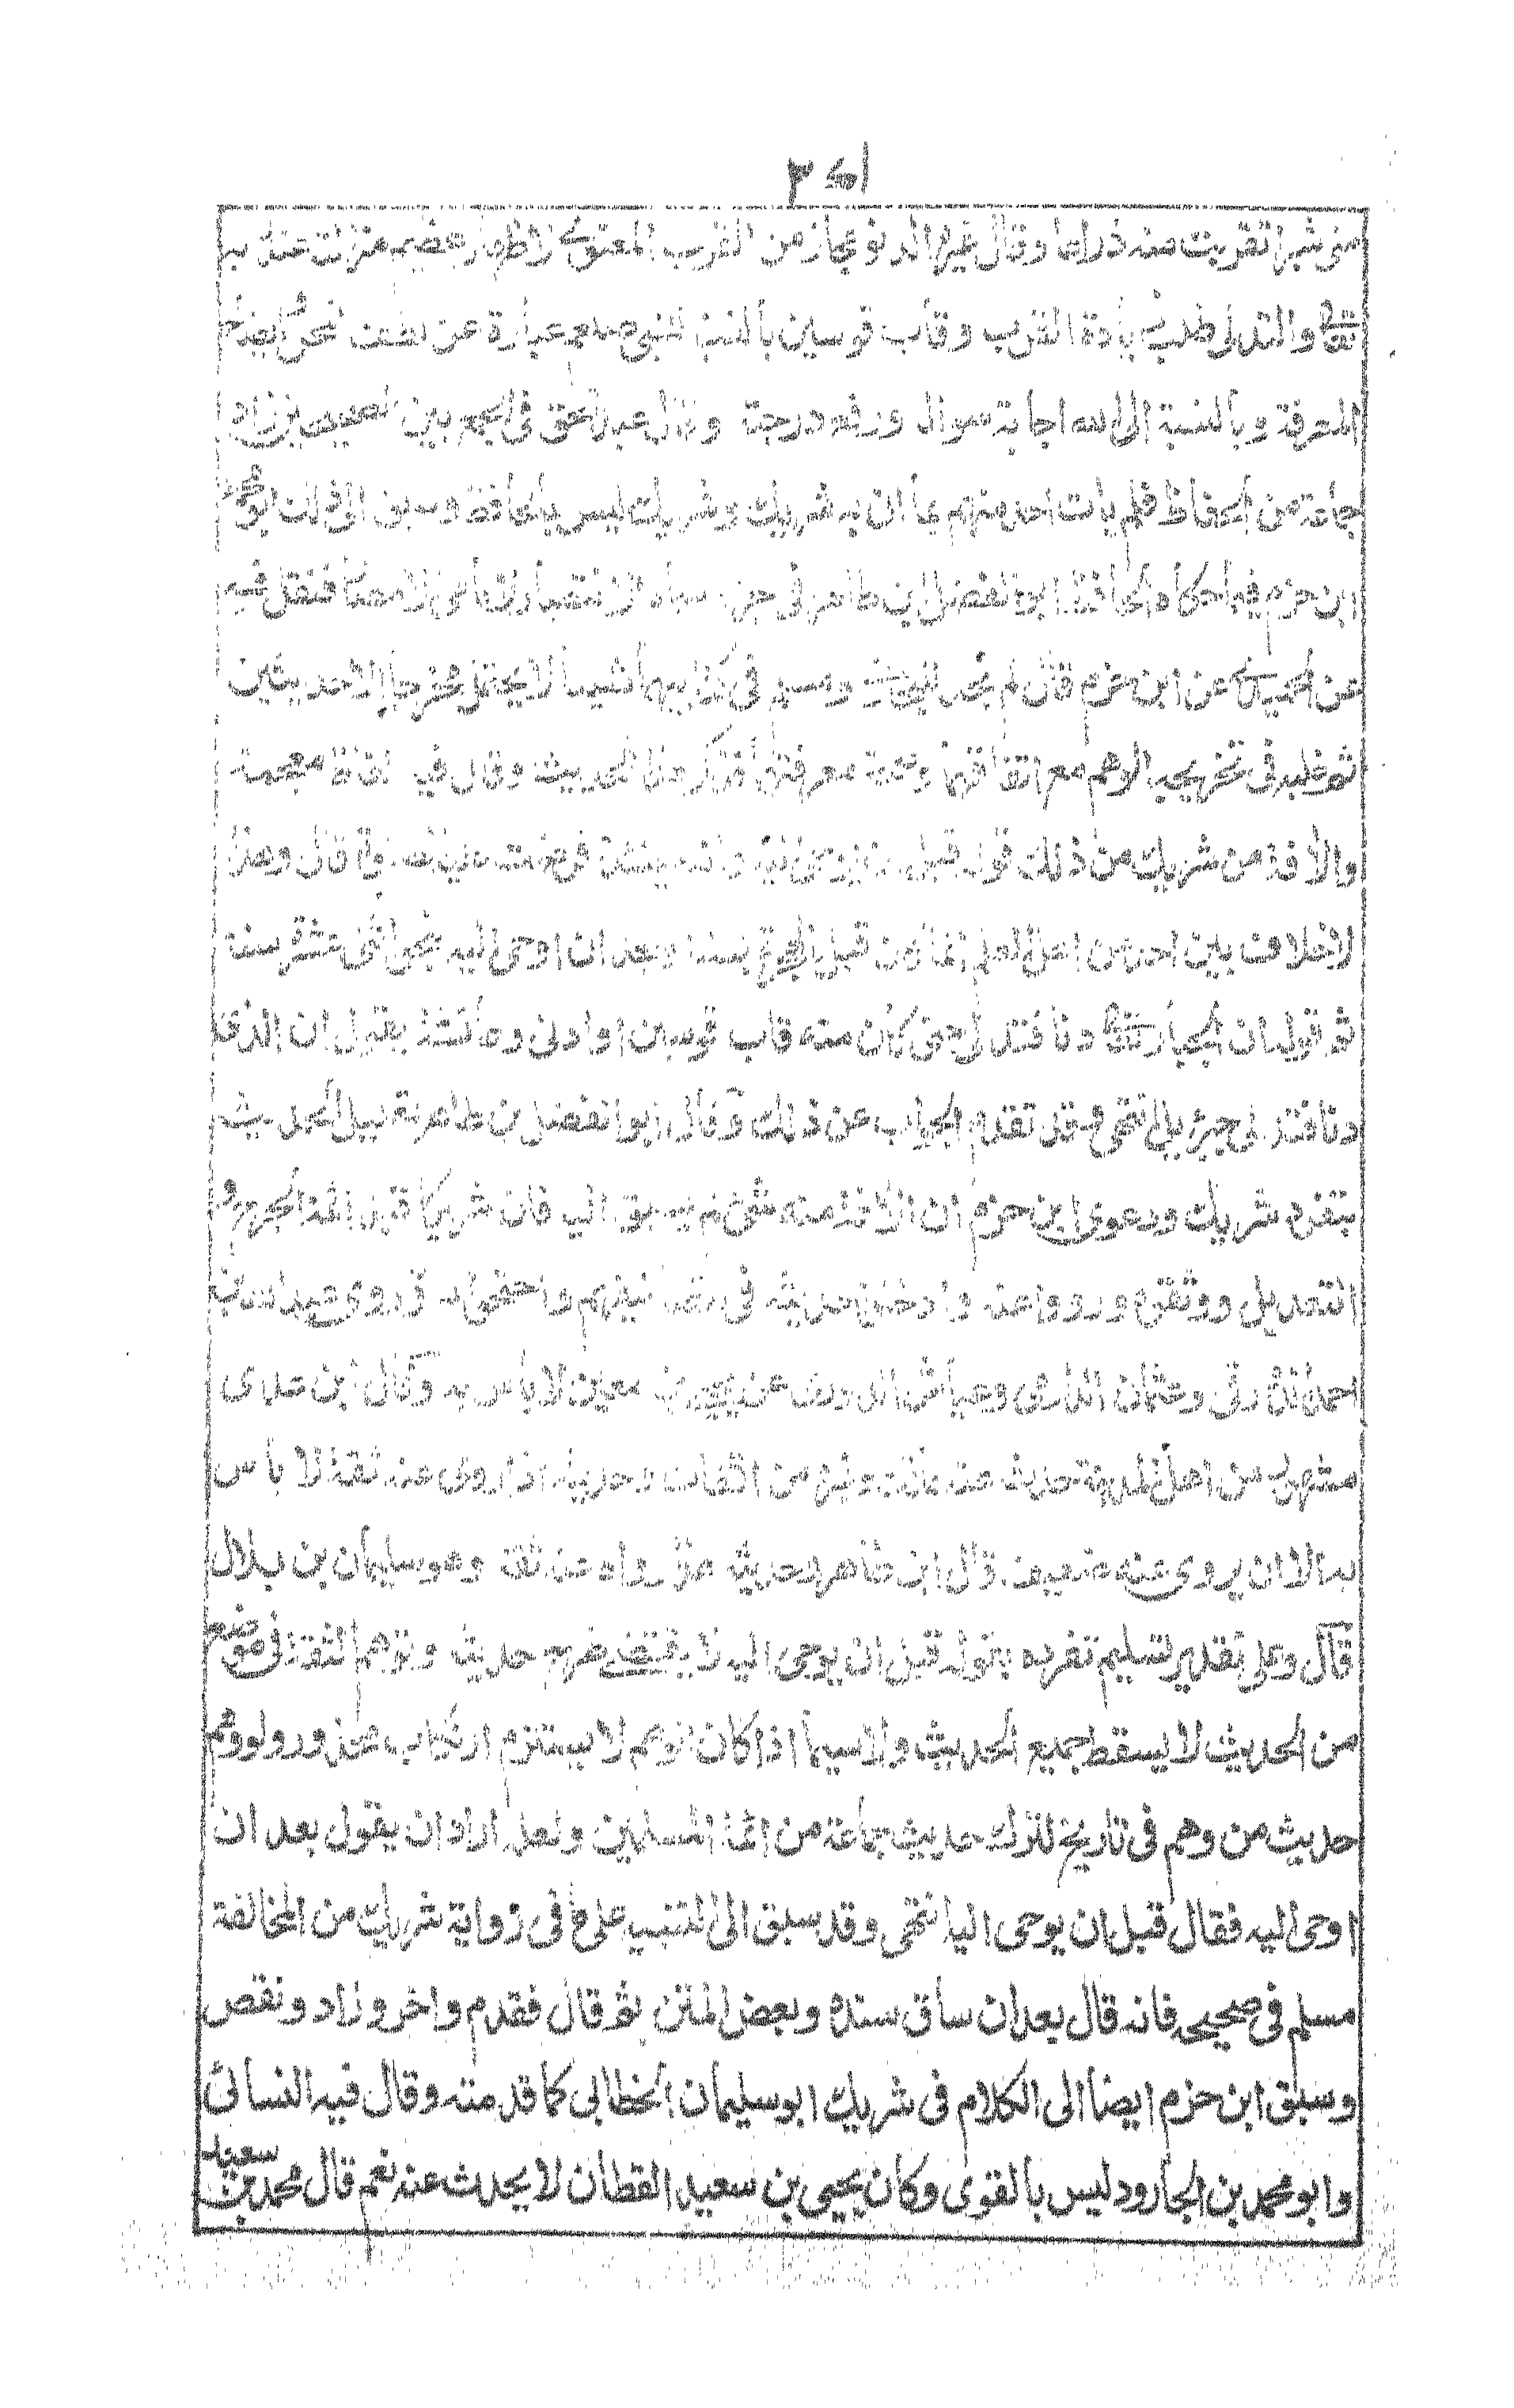 منى شبرا تقربت منه ذراعا وقال غيره الدنو مجاز من القرب المعنوي لاظهار عظيم منزلته عند ربه
تعالى والتدلي طلب زيادة القرب وقاب قوسين بالنسبة للنبي صلعم عبارة عن لطف المحل وايضاح
المعرفة وبالنسبة الى الله اجابة سواله ورفع درجة وقال عبد الحق في الجمع بين الصحيحين زاد
جماعة من الحفاظ فلم يات احد منهم بما اتى به شريك وشريك ليس بالحافظ وسبق الى ذلك ابو محمد
ابن حزم فيما حكاه الحافظ ابو الفضل ابن طاهر في جزء سماه الانتصار لامامي الامصار فنقل فيه
عن الحميدي عن ابن حزم قال لم نجد للبخاري ومسلم في كتابيهما شيئا لا يحتمل مخرجا الا حديثين
ثم غلبه في تخريجه الوهم مع اتقانهما وصحة معرفتهما فذكر هذا الحديث وقال فيه الفاظ معجمة
والافة من شريك من ذلك قوله قبل ان يوحى اليه وانه حينئذ فرضت عليه الصلوة قال وهذا
لا خلاف بين احد من اهل العلم انما كان قبل الهجرة بسنة وبعد ان اوحى اليه بنحو اثنى عشرة سنة
ثم قوله ان الجبار تعالى دنا فتدلى حتى كان منه قاب قوسين او ادنى وعائشة تقول ان الذي
دنا فتدلى جبريل انتهى وقد تقدم الجواب عن ذلك وقال ابو الفضل بن طاهر تعليل الحديث
بتفرد شريك ودعوى ابن حزم ان الافة منه شئ لم يسبق اليه فان شريكا قبله ائمة الجرح و
التعديل ووثقوه ورووا عنه وادخلوا حديثه في تصانيفهم واحتجوا به وروى عبد الله بن
احمد الدورقي وعثمان الدارمي وعباس الدوري عن يحيى بن معين لا باس به وقال ابن عدى
مشهور من اهل المدينة حدث عنه مالك وغيره من الثقات وحديثه اذا روى عنه ثقة لا باس
به الا ان يروى عنه ضعيف قال ابن طاهر وحديثه هذا رواه عنه ثقة وهو سليمان بن بلال
قال وعلى تقدير تسليم تفرده بقوله قبل ان يوحى اليه لا يقتضي طرح حديثه ووهم الثقة في موضع
من الحديث لا يسقط جميع الحديث ولا سيما اذا كان الوهم لا يستلزم ارتكاب محذور ولو وهم
حديث من وهم في تاريخ لترك حديث جماعة من ائمة المسلمين ولعله اراد ان يقول بعد ان
اوحى اليه فقال قبل ان يوحى اليه انتهى وقد سبق الى التنبيه على ما في رواية شريك من المخالفة
مسلم في صحيحه فانه قال بعد ان ساق سنده وبعض المتن ثم قال فقدم واخر وزاد ونقص
وسبق ابن حزم ايضا الى الكلام في شريك ابو سليمان الخطابي كما قدمته وقال فيه النسائي
وابو محمد بن الجارود ليس بالقوى وكان يحيى بن سعيد القطان لا يحدث عنه نعم قال محمد بن سعيد